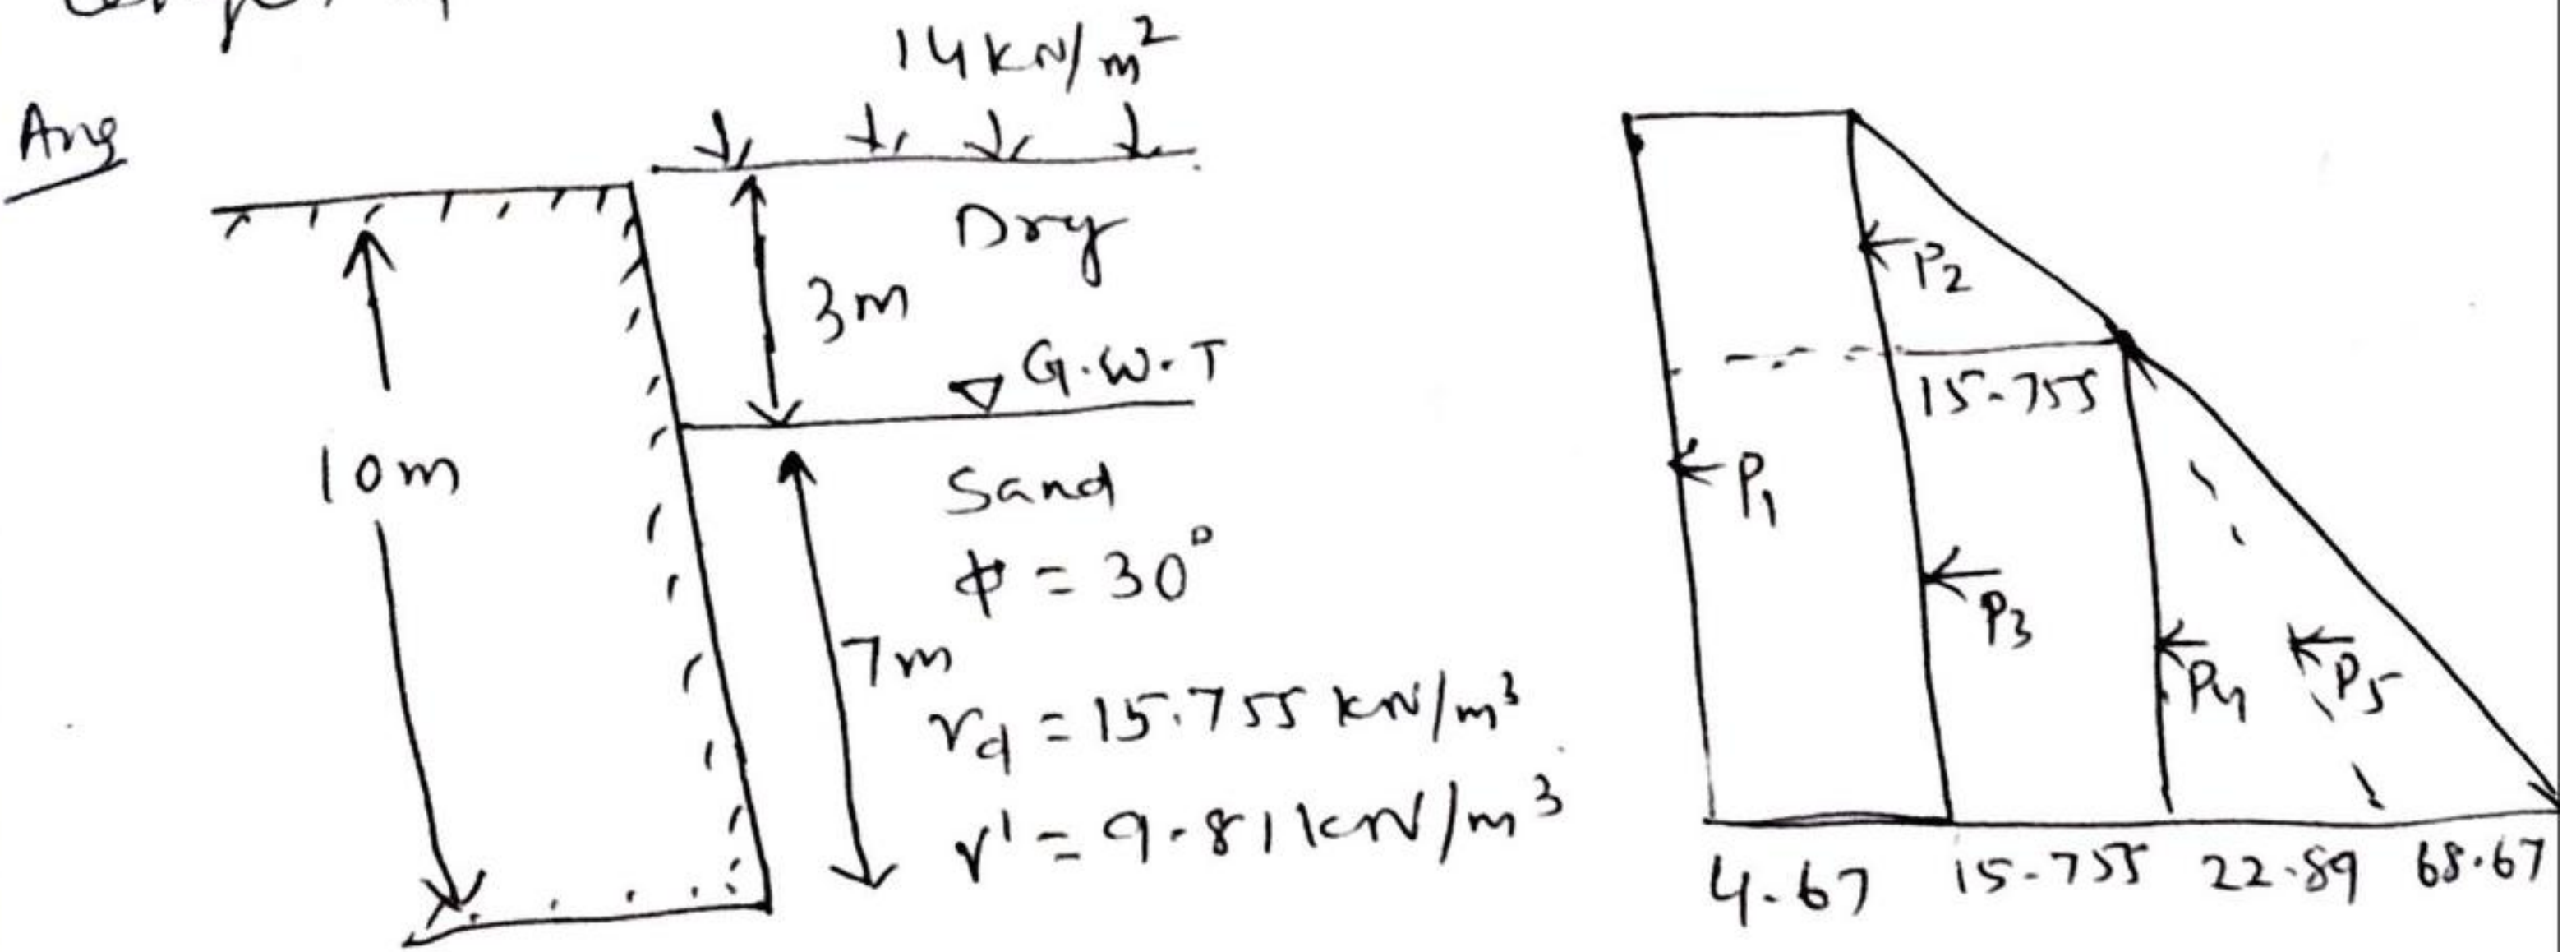 14 kN/m²
Ans
Dry
3m
G.W.T
10m
Sand
ϕ = 30°
7m
γd = 15.755 kN/m³
γ' = 9.81 kN/m³
P2
15.755
P1
P3
P4
P5
4.67 15.755 22.89 68.67